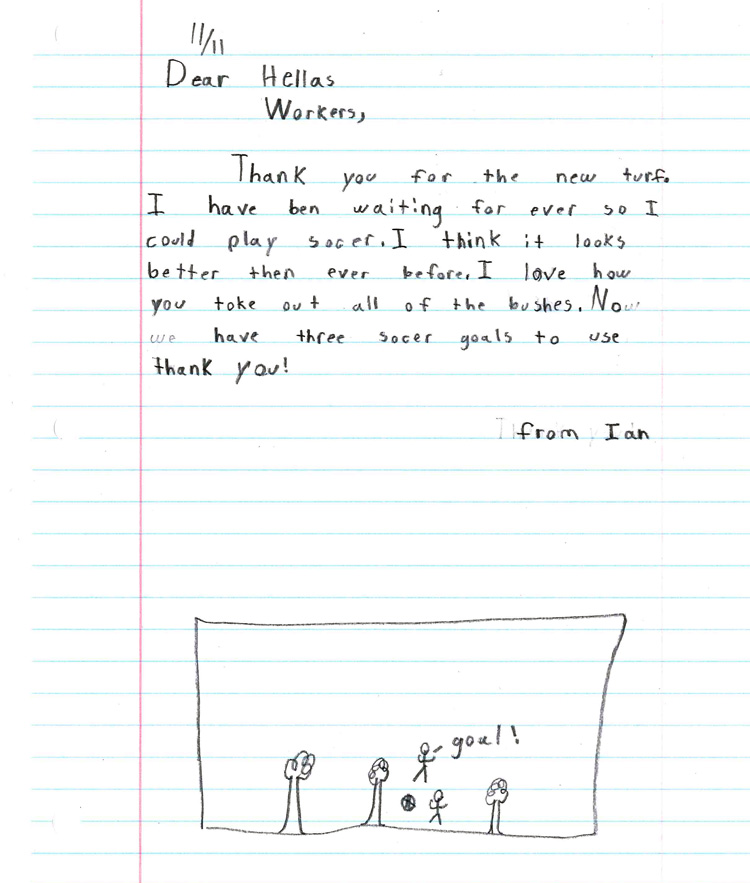 11/11
Dear Hellas
Workers,
Thank you for the new turf.
I have ben waiting for ever so I
could play socer. I think it looks
better then ever before. I love how
you toke out all of the bushes. Now
we have three socer goals to use
thank you!
from Ian
goal!